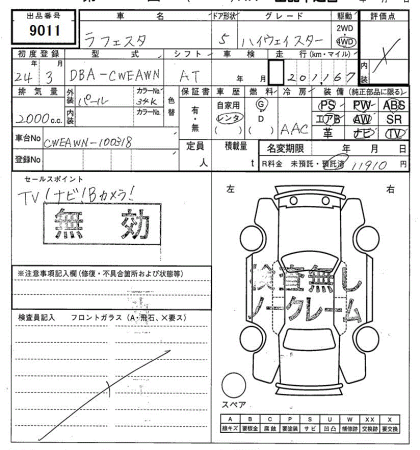 出品番号 車名 ドア形状 グレード 駆動 評価点
9011 ラフェスタ 5 ハイウェイスター 2WD・4WD ×
初度登録 型式 シフト 車検 走行(km・マイル)
24年3月 DBA-CWEAWN AT 年 月 201,167
排気量 外装 カラーNo. 色替 保証書 車歴 燃料 冷房 装備(純正部品に限る)
パール 34K 有・無 自家用 G PS PW ABS
2000c.c. 内装 カラーNo. レンタ D AAC エアB AW SR
革 ナビ TV
車台No CWEAWN-100318 定員 人 積載量 t 名変期限 年 月 日
登録No R料金 未預託・預託済 11910円
セールスポイント
TV!ナビ!Bカメラ!
無効
左 右
※注意事項記入欄(修復・不具合箇所および状態等)
検査無し
ノークレーム
検査員記入 フロントガラス(A・飛石、×要ス)
スペア
A B C P S U W XX X
線キズ 要板金 腐蝕 要塗装 サビ 凹凸 補修跡 交換跡 要交換